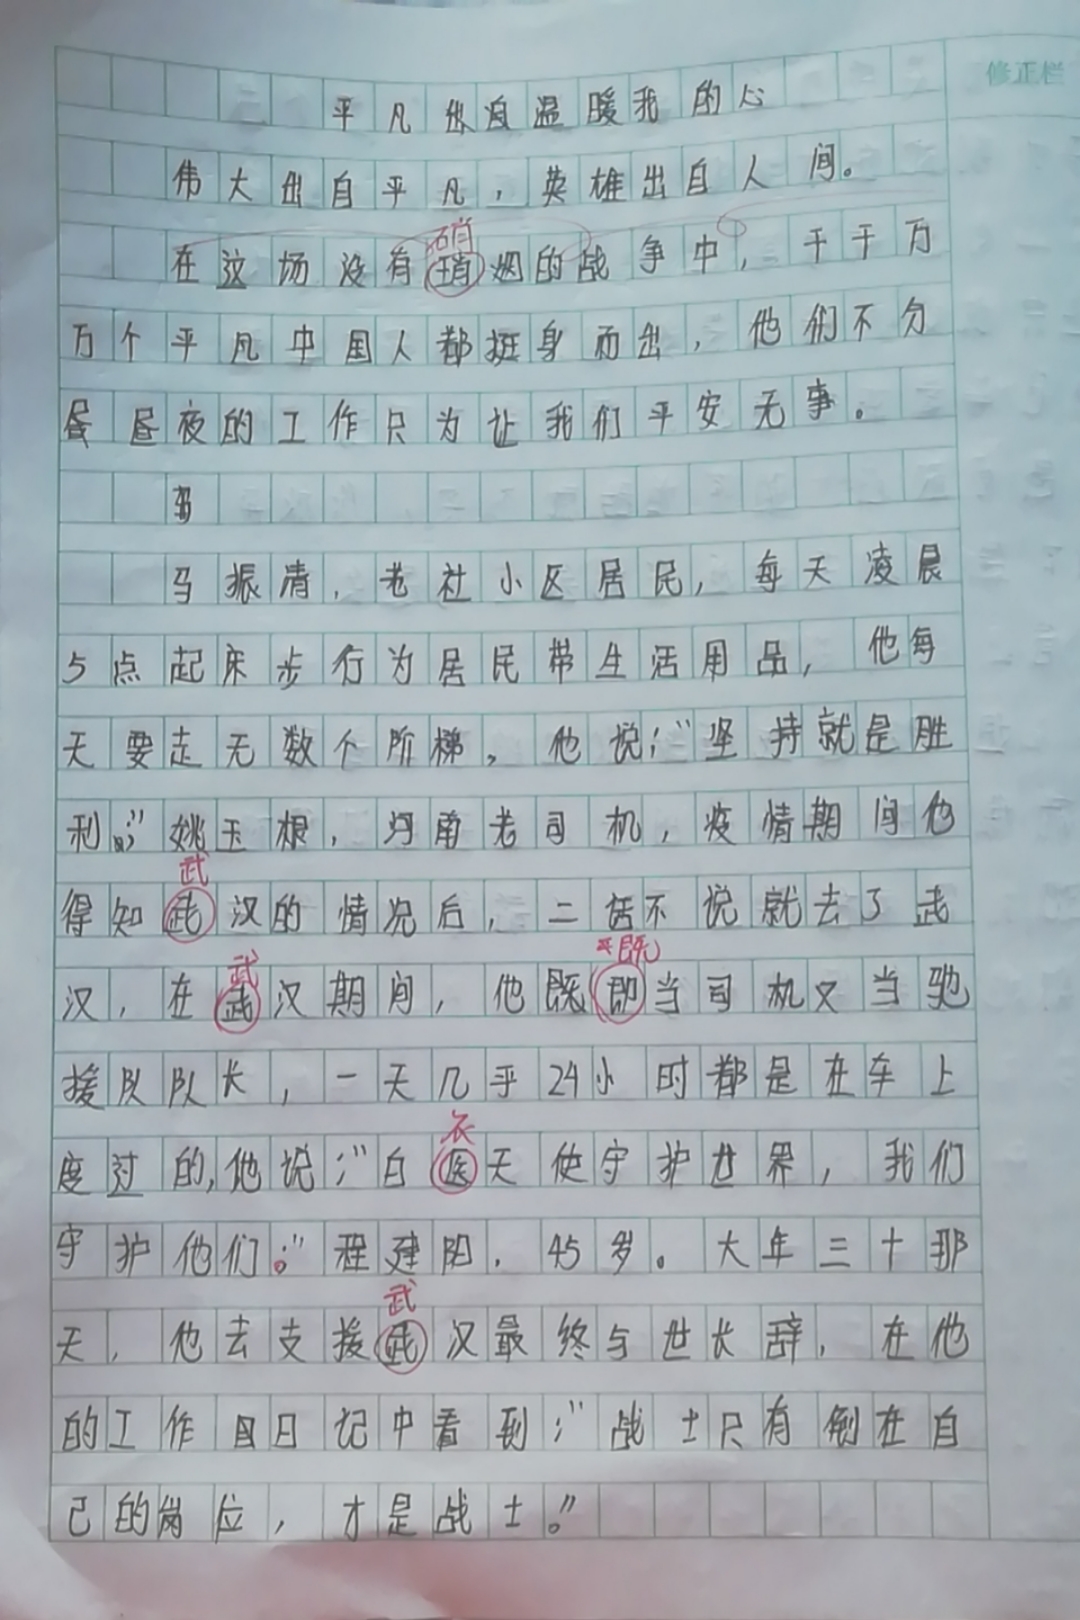 修正栏
平凡也温暖我的心
伟大出自平凡，英雄出自人间。
硝
在这场没有硝烟的战争中，千千万
万个平凡中国人都挺身而出，他们不分
昼夜的工作只为让我们平安无事。
马振清，老社小区居民，每天凌晨
5点起床步行为居民带生活用品，他每
天要走无数个阶梯。他说："坚持就是胜
利。"姚玉根，河南老司机，疫情期间他
武
得知武汉的情况后，二话不说就去了武
武 既
汉，在武汉期间，他既即当司机又当驰
援队队长，一天几乎24小时都是在车上
衣
度过的，他说："白医天使守护世界，我们
守护他们。"程建阳，45岁。大年三十那
武
天，他去支援武汉最终与世长辞，在他
的工作日记中看到："战士只有倒在自
己的岗位，才是战士。"